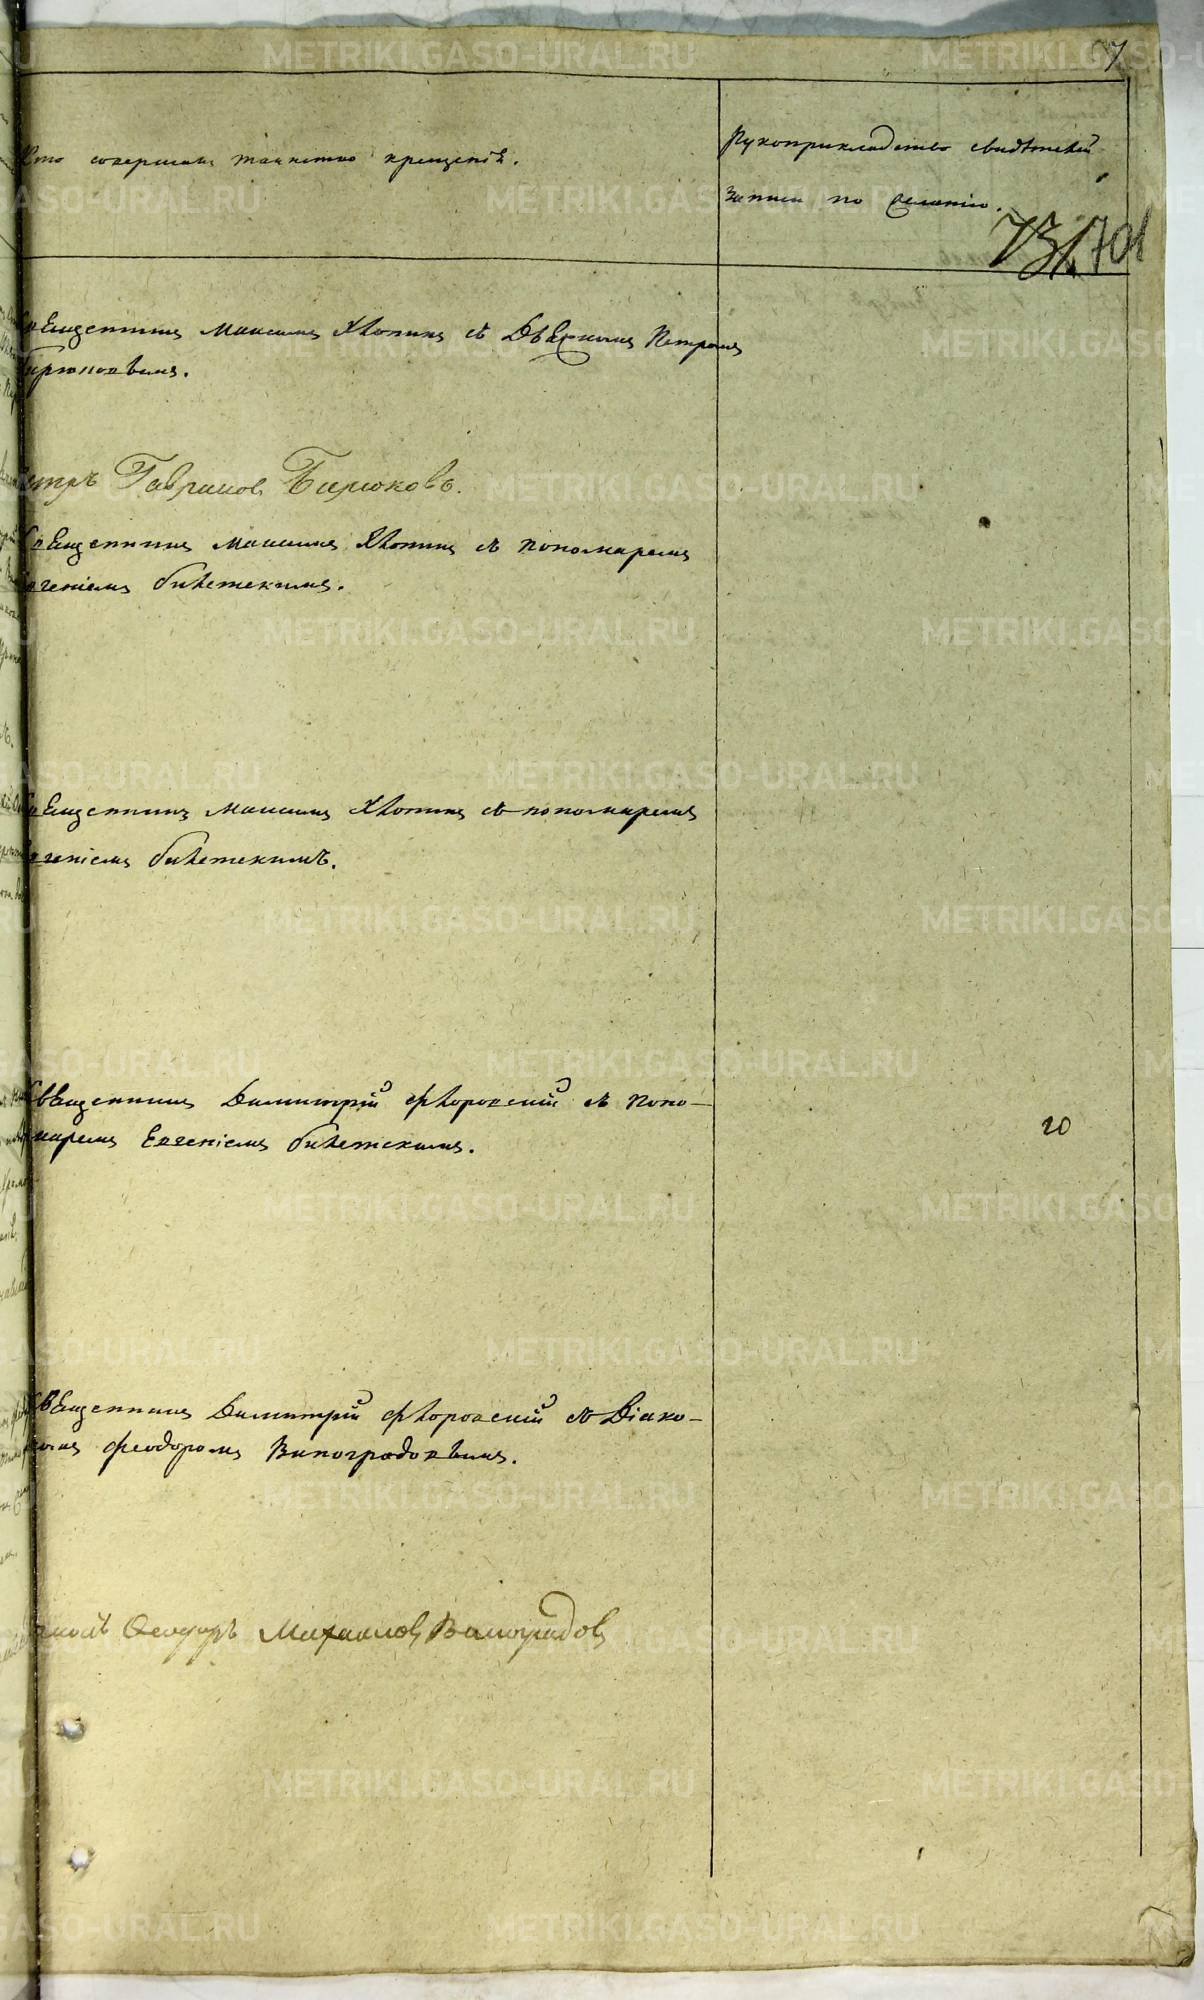 7
Кто совершалъ таинство крещенія.
Рукоприкладство свидѣтелей
записи по желанію.
701
Священникъ Максимъ Хлопинъ съ Петромъ
Бирюковымъ.
Петръ Гавриловъ Бирюковъ.
Священникъ Максимъ Хлопинъ съ пономаремъ
Евгеніемъ билетскимъ.
Священникъ Максимъ Хлопинъ съ пономаремъ
Евгеніемъ билетскимъ.
Священникъ Димитрій Флоровскій съ Поно-
маремъ Евгеніемъ билетскимъ.
10
Священникъ Димитрій Флоровскій съ Діако-
номъ Феодоромъ Виноградовымъ.
Ѳеодоръ Михаиловъ Виноградовъ
METRIKI.GASO-URAL.RU